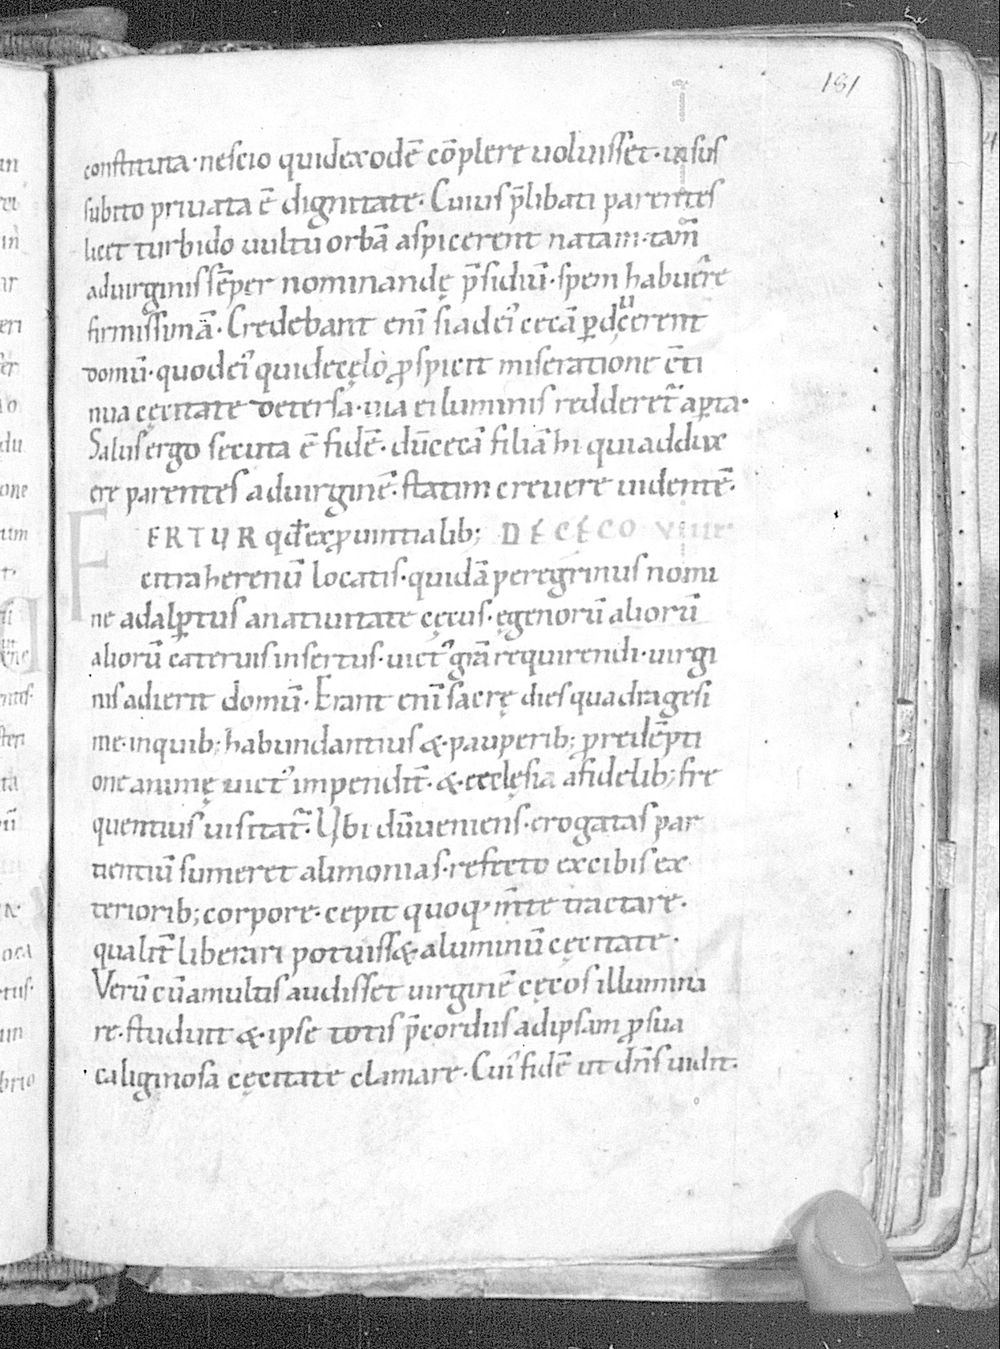 181
constituta· nescio quidexodē cōplere uoluisset· uisus
subito priuata ē dignitate· Cuius p̄libati parentes
licet turbido uultu orbā aspicerent natam· tam̄
aduirginis sēper nominandę p̄sidiū· spem habuer̄e
firmissimā· Credebant eni̅ siadei' cecā ꝑducerent
domū· quodei' quidecęlo ꝓspicit miseratione c̄ti
nua cęcitate detersa· uia ei luminis redderet̄ aꝑta·
Salus ergo secuta ē fidē· dūcecā filiā hi qui addux
ere parentes aduirginē· statim creuere uidentē·
FERTUR qđ exꝓuintialib; DE CECO
citra herenū locatis· quidā peregrinus nomi
ne adalꝑtus anatiuitate cęcus· egenorū aliorū
aliorū cateruis insertus· uict' gr̄a requirendi· uirgi
nis adierit domū· Erant eni̅ sacrę dies quadragesi
me· inquib; habundantius &· pauperib; predēpti
one animę uict' impendit̄· &· ecclęsia afidelib; fre
quentius uisitat̄· Ubi dūueniens· erogatas par
tientiū sumeret alimonias· refecto excibis ex
teriorib; corpore· cepit quoq' m̄te tractare·
qualit̄ liberari potuiss&· aluminū cęcitate·
Verū cūamultis audisset uirginē cęcos illumina
re· studuit &· ipse totis p̄cordiis adipsam ꝓsua
caliginosa cęcitate clamare· Cui' fidē ut dn̄s uidit·